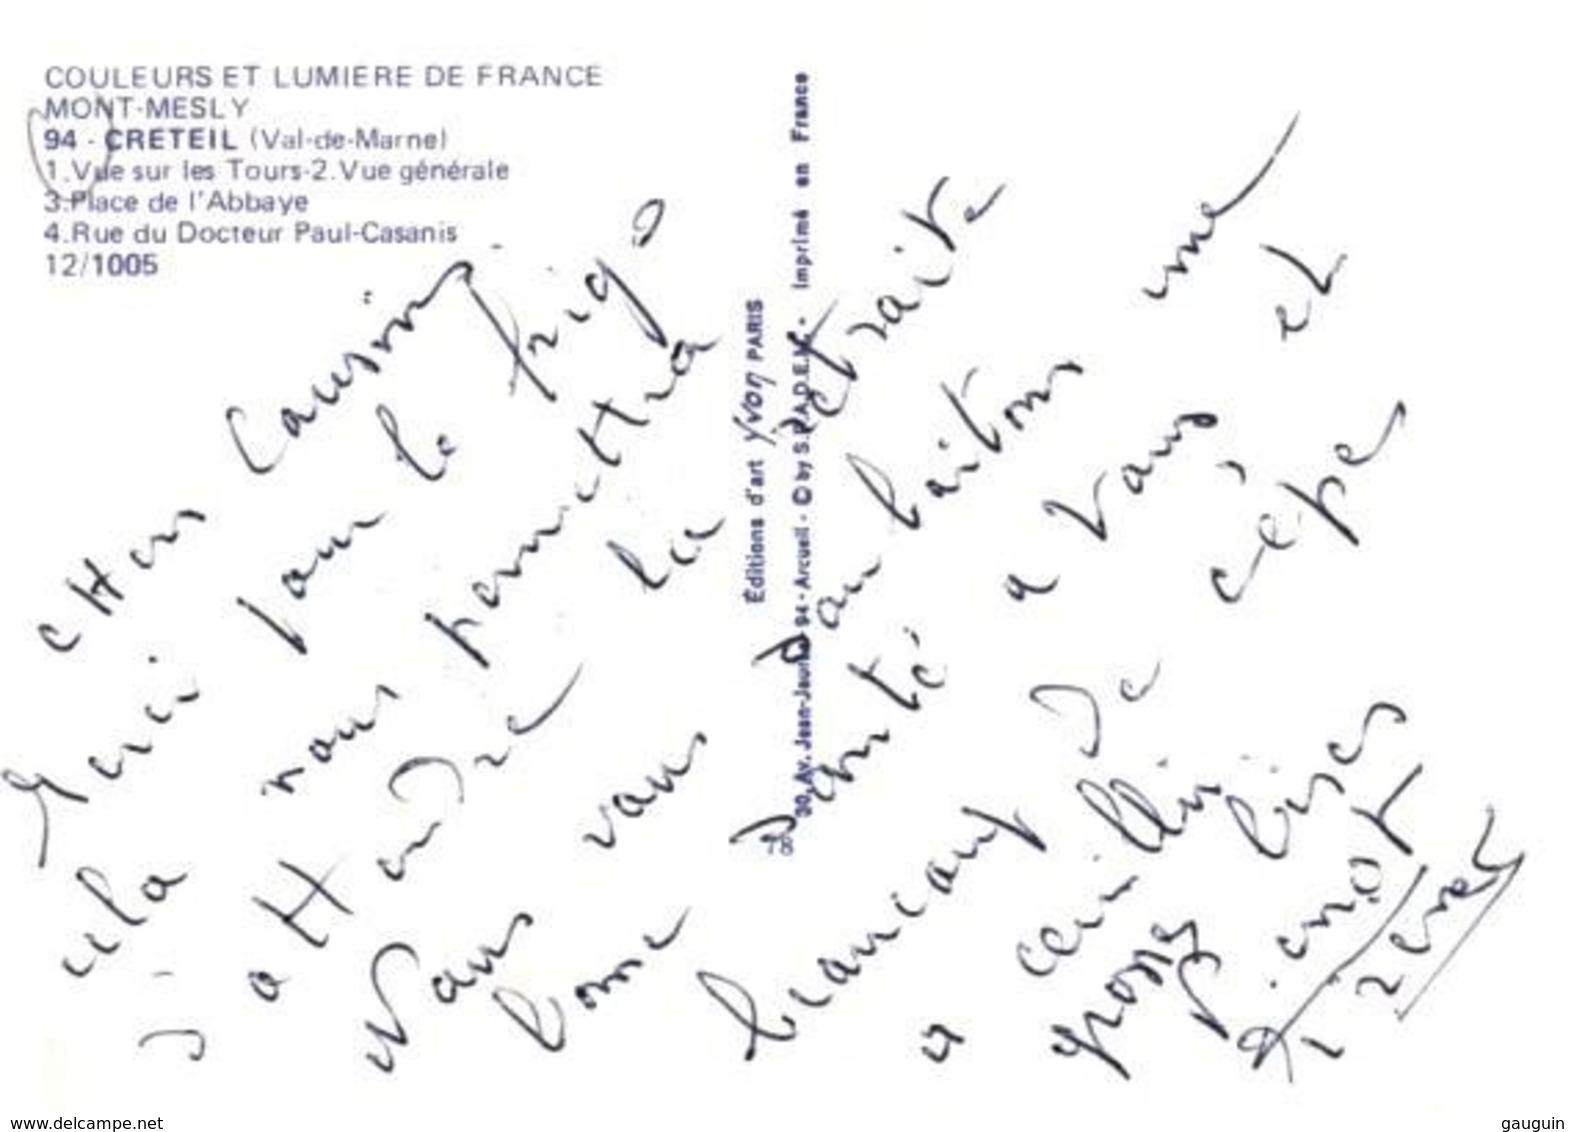 COULEURS ET LUMIERE DE FRANCE
MONT-MESLY
94 - CRETEIL (Val-de-Marne)
1.Vue sur les Tours-2.Vue générale
3.Place de l'Abbaye
4.Rue du Docteur Paul-Casanis
12/1005
Éditions d'art Yvon PARIS
30, Av. Jean-Jaurès 94 - Arcueil - © by S.P.A.D.E.M. - Imprimé en France
78
CHers Cousins
Merci pour le frigo
cela nous permettra
d'aHendre la retraite
Nous vous souhaitons une
bonne santé à vous et
beaucoup de cèpe
a ceuillir
grosses bises
www.delcampe.net
gauguin